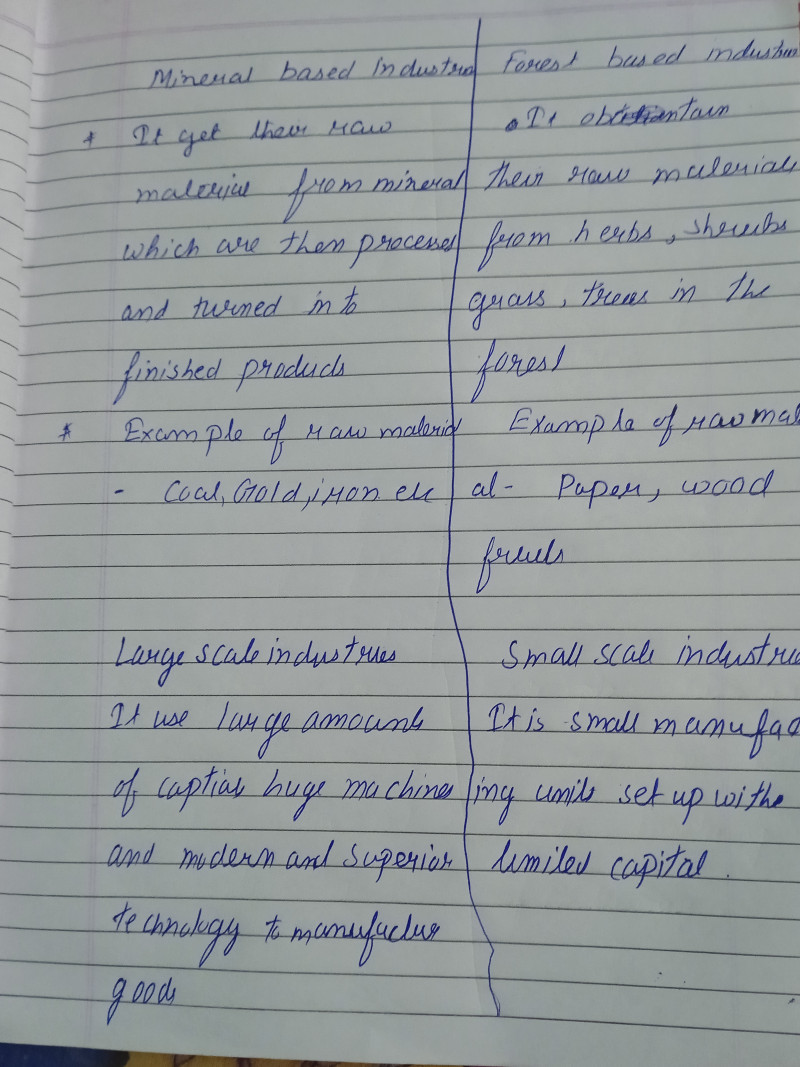 Mineral based Industri
* It get their raw
material from mineral
which are then processed
and turned in to
finished products
* Example of raw material
- Coal, Gold, iron etc
Forest based industri
• It obtain
their raw materials
from herbs, shrubs
grass, trees in the
forest
Example of raw mat
al- Paper, wood
Large scale industries
It use large amounts
of captial huge machines
and modern and superior
technology to manufactur
goods
Small scale industri
It is small manufac
ing units set up withe
limited capital.